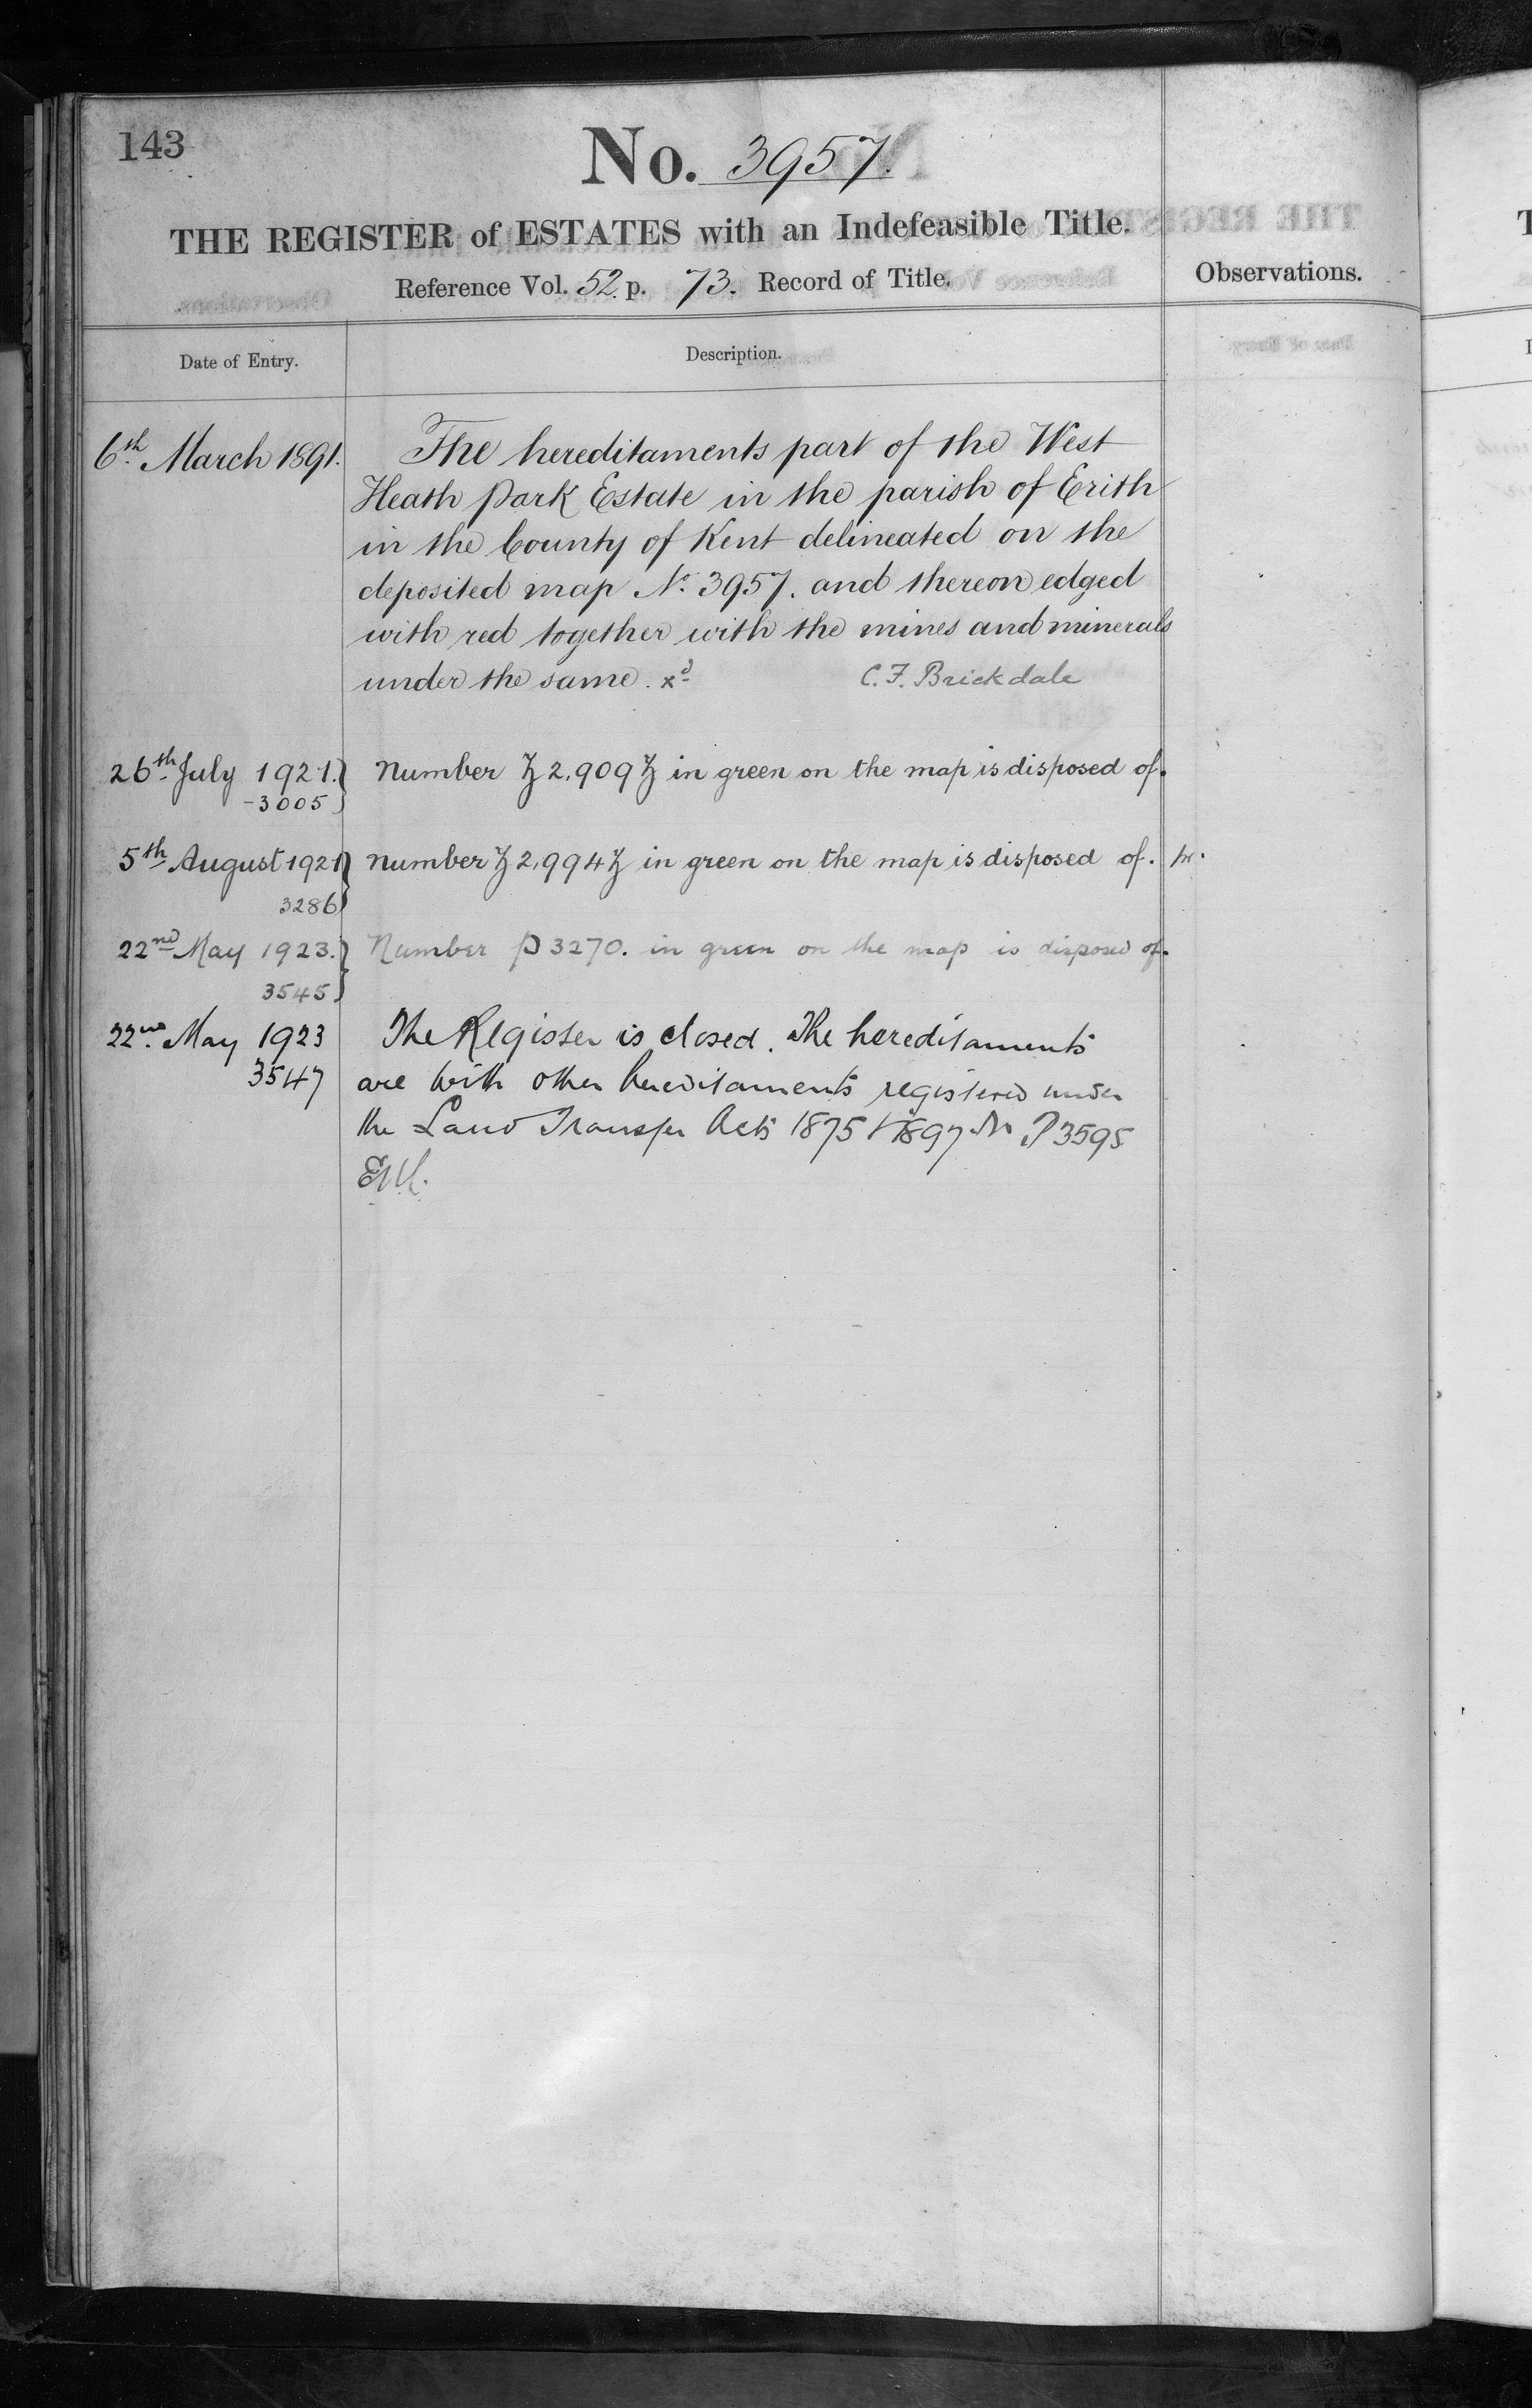 143
No. 3957.
THE REGISTER of ESTATES with an Indefeasible Title.
Reference Vol. 52. p. 73. Record of Title.
Observations.
Date of Entry.
Description.
6th March 1891.
The hereditaments part of the West
Heath Park Estate in the parish of Erith
in the County of Kent delineated on the
deposited map No. 3957. and thereon edged
with red together with the mines and minerals
under the same. xd
C. F. Brickdale
26th July 1921.
3005
Number Z 2,909 Z in green on the map is disposed of.
5th August 1921
3286
number Z 2,994 Z in green on the map is disposed of.
22nd May 1923.
3545
Number P 3270. in green on the map is disposed of.
22nd May 1923
3547
The Register is closed. The hereditaments
are with other hereditaments registered under
the Land Transfer Acts 1875 & 1897 No P 3595